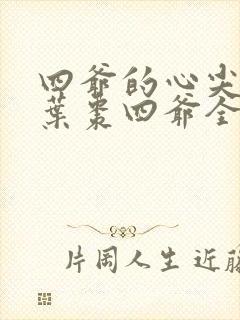 四爷的心尖
葉棗四爷全
片岡人生 近藤